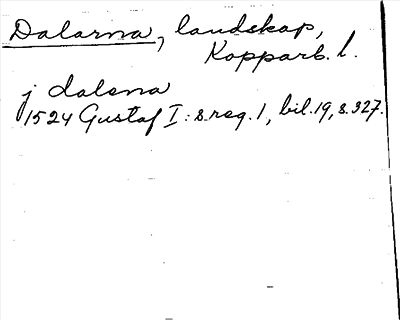 Dalarna, landskap,
Kopparb. l.
j dalena
1524 Gustaf I: s. reg. 1, bil. 19, s. 327.